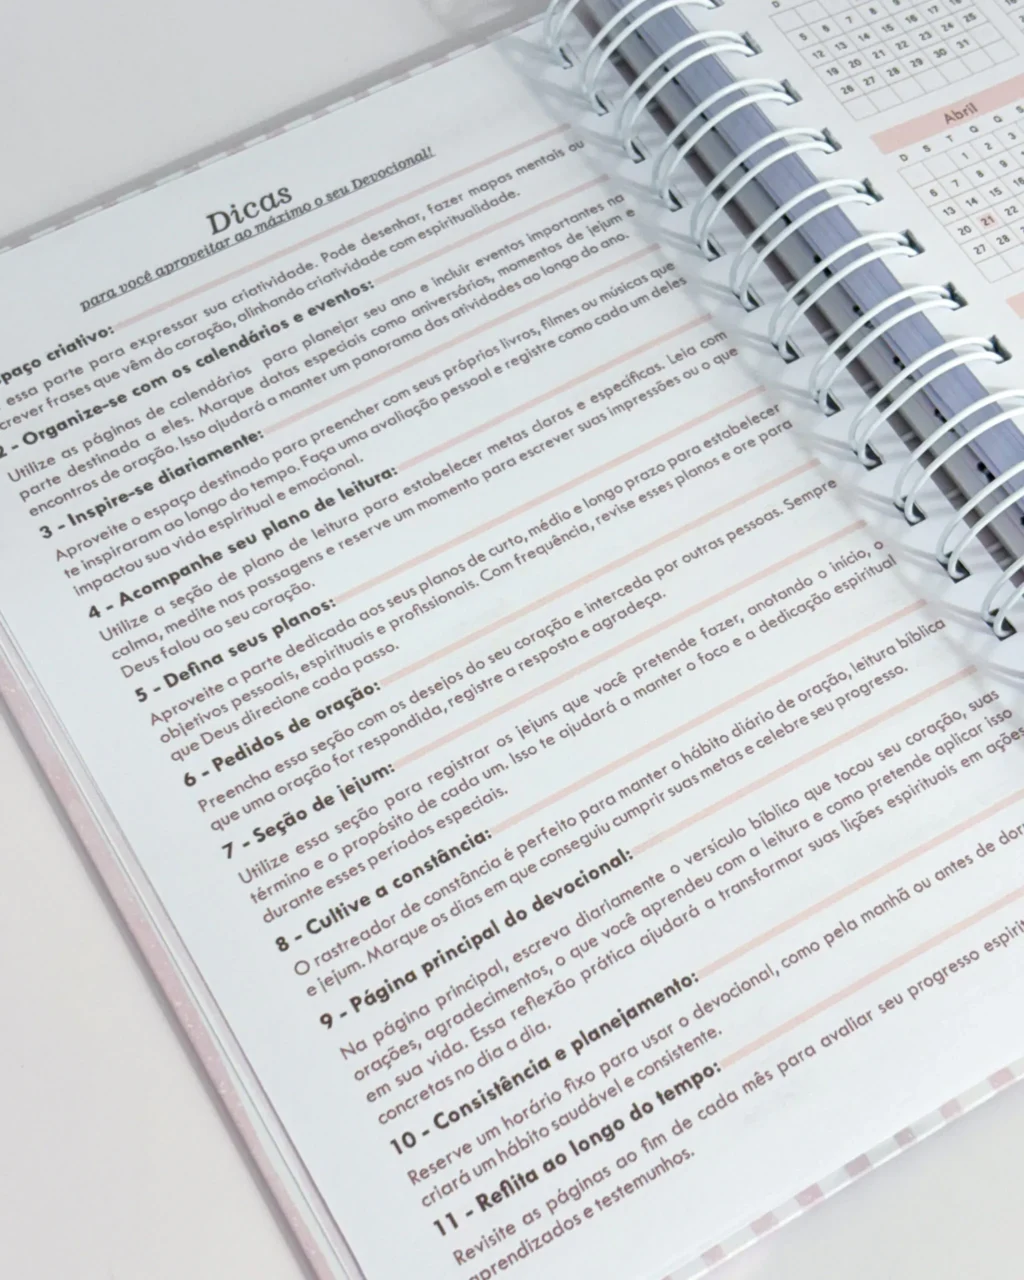 Dicas
para você aproveitar ao máximo o seu Devocional!
paço criativo:
essa parte para expressar sua criatividade. Pode desenhar, fazer mapas mentais ou
crever frases que vêm do coração, alinhando criatividade com espiritualidade.
2 - Organize-se com os calendários e eventos:
Utilize as páginas de calendários para planejar seu ano e incluir eventos importantes na
parte destinada a eles. Marque datas especiais como aniversários, momentos de jejum e
encontros de oração. Isso ajudará a manter um panorama das atividades ao longo do ano.
3 - Inspire-se diariamente:
Aproveite o espaço destinado para preencher com seus próprios livros, filmes ou músicas que
te inspiraram ao longo do tempo. Faça uma avaliação pessoal e registre como cada um deles
impactou sua vida espiritual e emocional.
4 - Acompanhe seu plano de leitura:
Utilize a seção de plano de leitura para estabelecer metas claras e específicas. Leia com
calma, medite nas passagens e reserve um momento para escrever suas impressões ou o que
Deus falou ao seu coração.
5 - Defina seus planos:
Aproveite a parte dedicada aos seus planos de curto, médio e longo prazo para estabelecer
objetivos pessoais, espirituais e profissionais. Com frequência, revise esses planos e ore para
que Deus direcione cada passo.
6 - Pedidos de oração:
Preencha essa seção com os desejos do seu coração e interceda por outras pessoas. Sempre
que uma oração for respondida, registre a resposta e agradeça.
7 - Seção de jejum:
Utilize essa seção para registrar os jejuns que você pretende fazer, anotando o início, o
término e o propósito de cada um. Isso te ajudará a manter o foco e a dedicação espiritual
durante esses períodos especiais.
8 - Cultive a constância:
O rastreador de constância é perfeito para manter o hábito diário de oração, leitura bíblica
e jejum. Marque os dias em que conseguiu cumprir suas metas e celebre seu progresso.
9 - Página principal do devocional:
Na página principal, escreva diariamente o versículo bíblico que tocou seu coração, suas
orações, agradecimentos, o que você aprendeu com a leitura e como pretende aplicar isso
em sua vida. Essa reflexão prática ajudará a transformar suas lições espirituais em ações
concretas no dia a dia.
10 - Consistência e planejamento:
Reserve um horário fixo para usar o devocional, como pela manhã ou antes de dor
criará um hábito saudável e consistente.
11 - Reflita ao longo do tempo:
Revisite as páginas ao fim de cada mês para avaliar seu progresso espirit
aprendizados e testemunhos.
D
5 6 7 8 9
12 13 14 15 16 17 18
19 20 21 22 23 24 25
26 27 28 29 30 31
Abril
D S T Q Q S
1 2 3
6 7 8 9
13 14 15 16
20 21 22
27 28